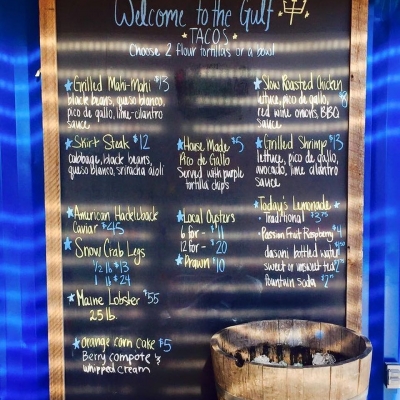 Welcome to the Gulf
TACOS
Choose 2 flour tortillas or a bowl
Grilled Mahi-Mahi $13
black beans, queso blanco,
pico de gallo, lime-cilantro
sauce
Skirt Steak $12
cabbage, black beans,
queso blanco, sriracha aioli
American Hackleback
Caviar $45
Snow Crab Legs
1/2 lb $13
1 lb $24
Maine Lobster $55
2.5 lb.
Orange Corn Cake $5
Berry compote &
whipped cream
House Made $5
Pico De Gallo
Served with purple
tortilla chips
Local Oysters
6 for - $11
12 for - $20
Prawn $10
Slow Roasted Chicken
lettuce, pico de gallo, $8
red wine onions, BBQ
Sauce
Grilled Shrimp $13
lettuce, pico de gallo,
avocado, lime cilantro
sauce
Today's Lemonade
Traditional $3.75
Passion Fruit Raspberry $4
dasani bottled water
sweet or unsweet tea
fountain soda